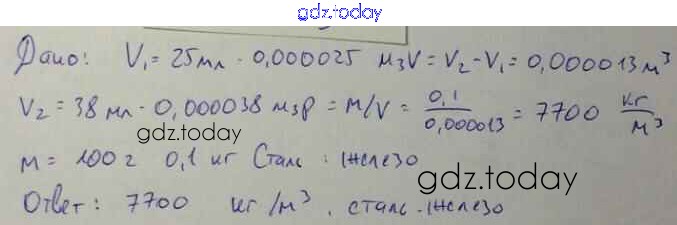 gdz.today
Дано: V₁=25мл - 0,000025 м3V=V₂-V₁=0,000013м³
V₂=38 мл - 0,000038 м3ρ = м/V = 0,1/0,000013 = 7700 кг/м³
gdz.today
м= 100г 0,1 кг Сталь : железо
gdz.today
Ответ: 7700 кг/м³. сталь-железо